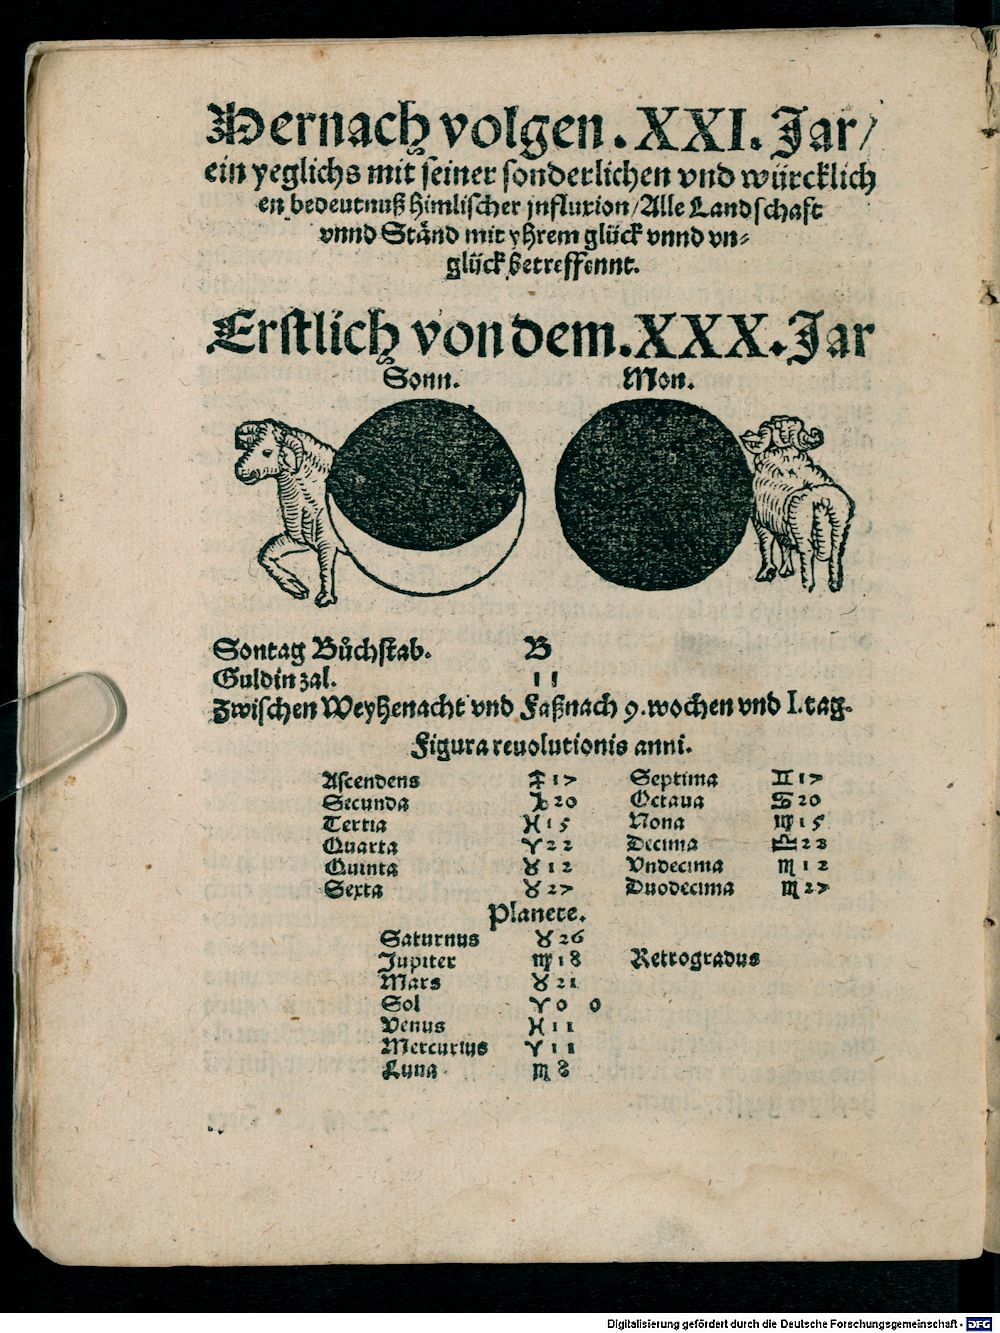 Hernach volgen .XXI. Jar/
ein yeglichs mit seiner sonderlichen vnd würcklich
en bedeutnuß himlischer jnfluxion/Alle Landschafft
vnnd Ständ mit yhrem glück vnnd vn⸗
glück betreffennt.
Erstlich von dem .XXX. Jar
Sonn. Mon.
Sontag Bůchstab. B
Guldin zal. 11
Zwischen Weyhenacht vnd Faßnach 9. wochen vnd I. tag.
Figura reuolutionis anni.
Ascendens ♐ 17 Septima ♊ 17
Secunda ♑ 20 Octaua ♋ 20
Tertia ♓ 15 Nona ♍ 15
Quarta ♈ 22 Decima ♎ 22
Quinta ♉ 12 Vndecima ♏ 12
Sexta ♉ 27 Duodecima ♏ 27
Planete.
Saturnus ♉ 26
Jupiter ♍ 18 Retrogradus
Mars ♉ 21
Sol ♈ 0 0
Venus ♓ 11
Mercurius ♈ 11
Luna ♏ 8
Digitalisierung gefördert durch die Deutsche Forschungsgemeinschaft - DFG